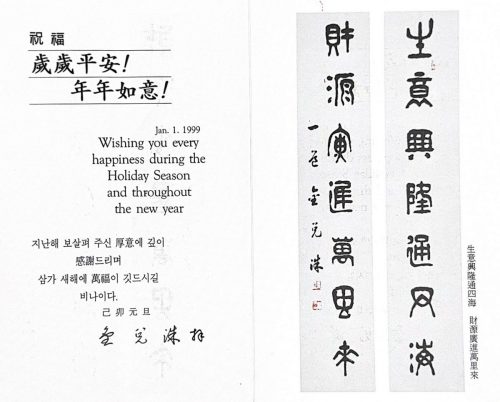 祝福
歲歲平安!
年年如意!
Jan. 1. 1999
Wishing you every
happiness during the
Holiday Season
and throughout
the new year
지난해 보살펴 주신 厚意에 깊이
感謝드리며
삼가 새해에 萬福이 깃드시길
비나이다.
己卯元旦
金兌洙拜
生意興隆通四海
財源廣進萬里來
金兌洙
生意興隆通四海 財源廣進萬里來